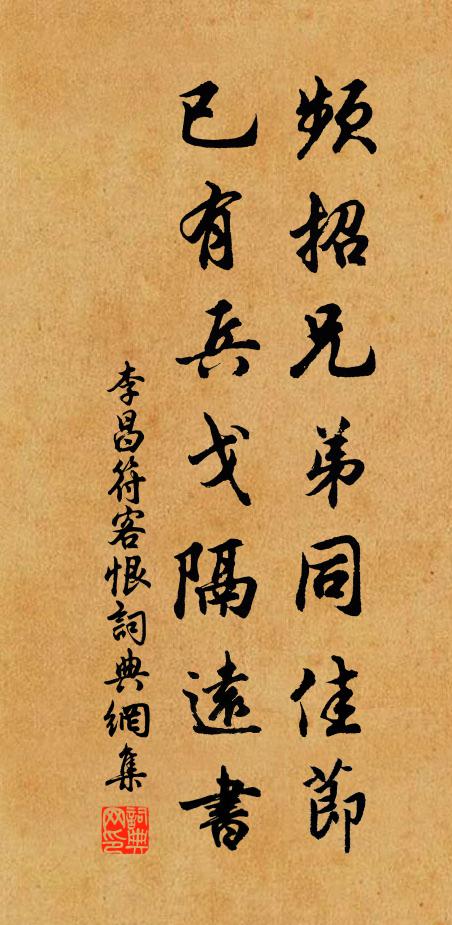 頻招兄弟同佳節
已有兵戈隔遠書
李昌符客恨詞典網集
詞典网印